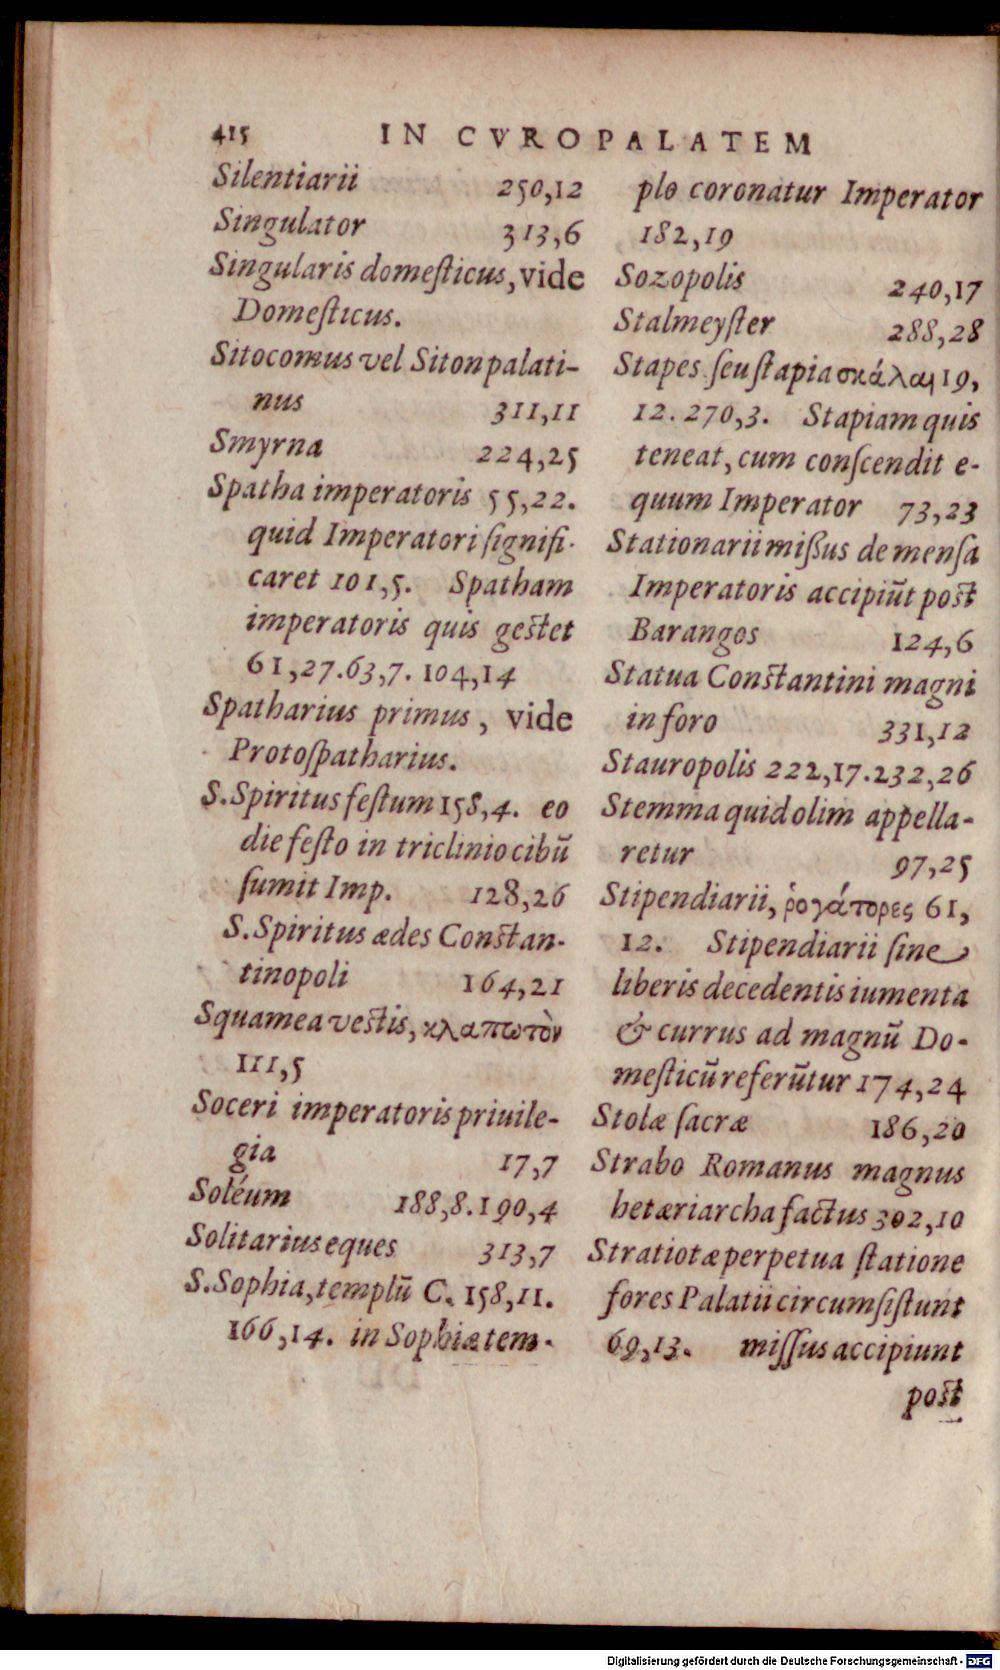 415 IN CVROPALATEM
Silentiarii 250,12
Singulator 313,6
Singularis domeſticus, vide
Domeſticus.
Sitocomus vel Siton palati-
nus 311,11
Smyrna 224,25
Spatha imperatoris 55,22.
quid Imperatori ſignifi-
caret 101,5. Spatham
imperatoris quis geſtet
61,27.63,7. 104,14
Spatharius primus, vide
Protoſpatharius.
S. Spiritus feſtum 158,4. eo
die feſto in triclinio cibū
ſumit Imp. 128,26
S. Spiritus ædes Conſtan-
tinopoli 164,21
Squamea veſtis, κλαπωτὸν
111,5
Soceri imperatoris priuile-
gia 17,7
Soléum 188,8.190,4
Solitarius eques 313,7
S. Sophia, templū C. 158,11.
166,14. in Sophiæ tem-
plo coronatur Imperator
182,19
Sozopolis 240,17
Stalmeyſter 288,28
Stapes ſeu ſtapia σκάλαι 19,
12. 270,3. Stapiam quis
teneat, cum conſcendit e-
quum Imperator 73,23
Stationarii mißus de menſa
Imperatoris accipiūt poſt
Barangos 124,6
Statua Conſtantini magni
in foro 331,12
Stauropolis 222,17.232,26
Stemma quid olim appella-
retur 97,25
Stipendiarii, ῥογάτορες 61,
12. Stipendiarii ſine
liberis decedentis iumenta
& currus ad magnū Do-
meſticū referūtur 174,24
Stolæ ſacræ 186,20
Strabo Romanus magnus
hetæriarcha factus 302,10
Stratiotæ perpetua ſtatione
fores Palatii circumſiſtunt
69,13. miſſus accipiunt
poſt
Digitalisierung gefördert durch die Deutsche Forschungsgemeinschaft - DFG